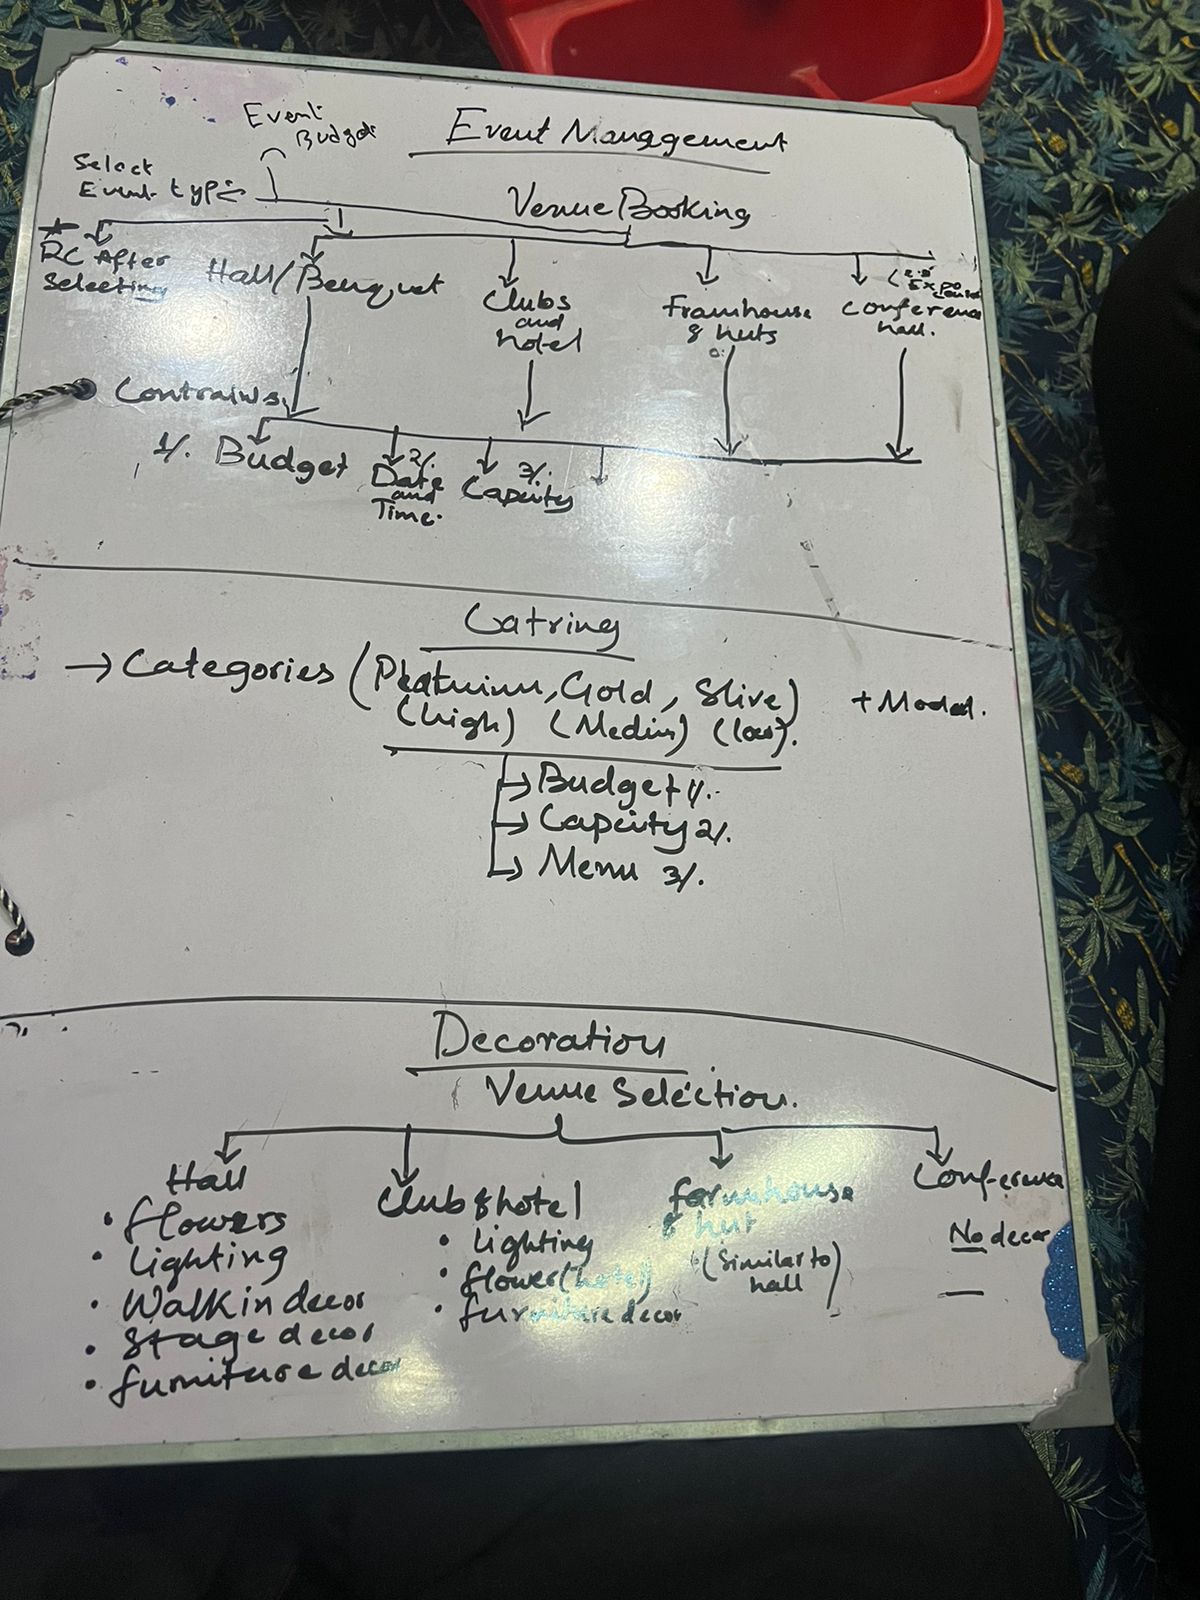 Event Management
Event
Budget
Select
Event type
Venue Booking
RC After
Selecting
Hall/Benquet
Clubs
and
hotel
Framhouse
& huts
Expo
Conference
hall.
Contrains
1/. Budget
2/.
Date
and
Time.
3/.
Capcity
Catring
→ Categories (Platnium, Gold, Slive) + Modal.
(high) (Medium) (low).
→ Budget 1/.
→ Capcity 2/.
→ Menu 3/.
Decoration
Venue Selection.
Hall
• flowers
• Lighting
• Walk in decor
• Stage decor
• furniture decor
Club & hotel
• Lighting
• flower (hotel)
• furniture decor
farmhouse
& hut
(Similar to)
hall
Conference
No decor